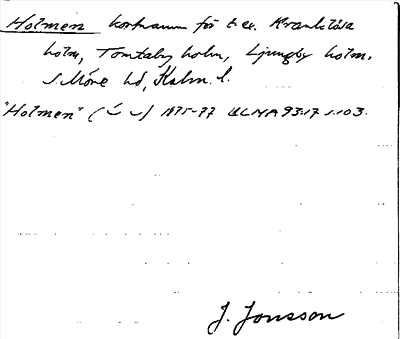 Holmen kortnamn för t.ex. Kranklösa
holm, Tomtaby holm, Ljungby holm.
S. Möre hd, Kalm. l.
"Holmen" ( ́ ) 1875-77 ULMA 93:17 s. 103.
J. Jonsson